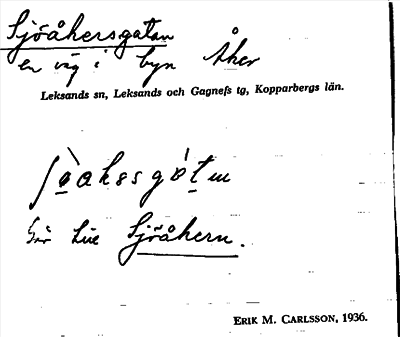 Sjöåkersgatan
en väg i byn Åker
Leksands sn, Leksands och Gagnefs tg, Kopparbergs län.
Går till Sjöåkern.
ERIK M. CARLSSON, 1936.